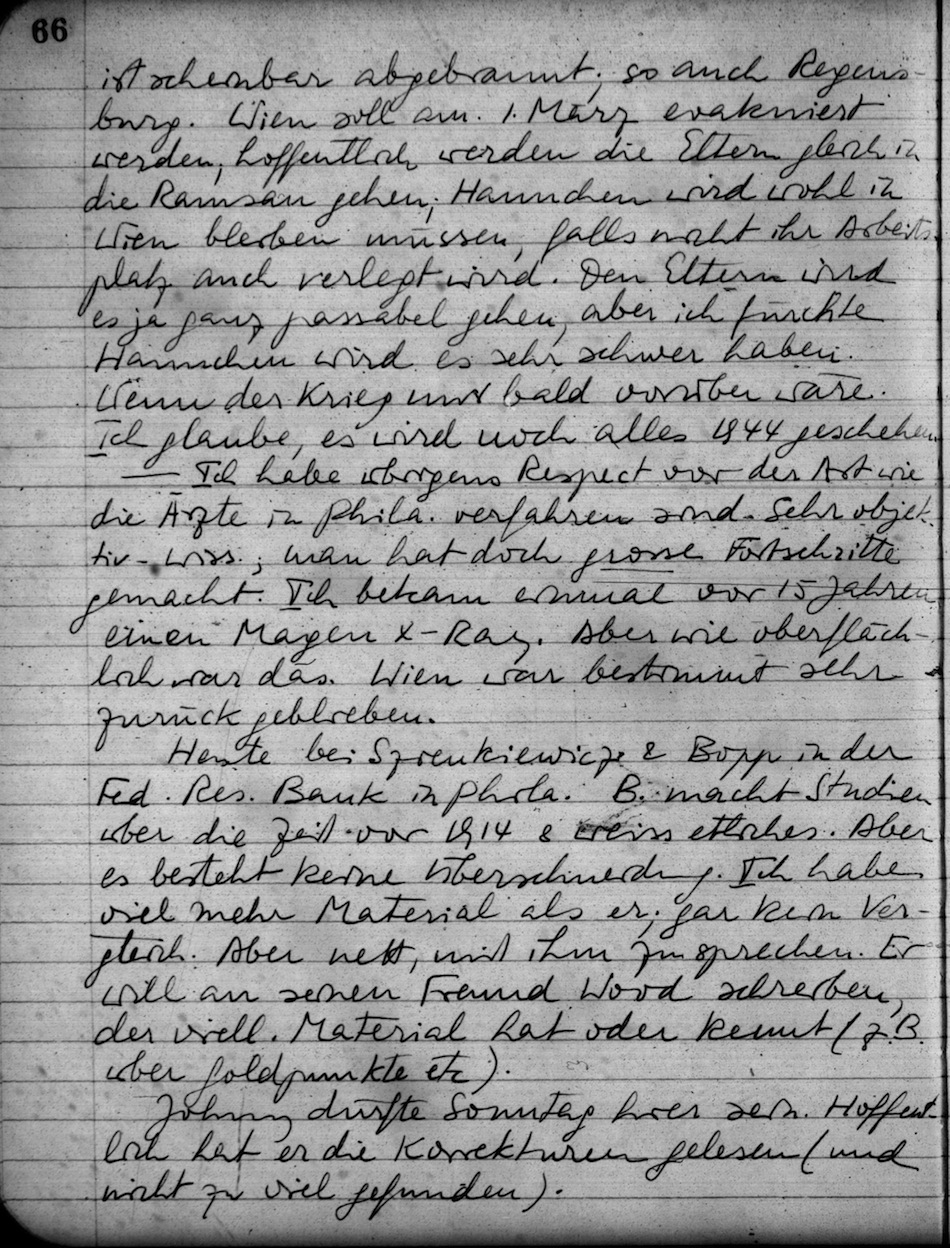 66
ist scheinbar abgebrannt; so auch Regens-
burg. Wien soll am 1. März evakuiert
werden, hoffentlich werden die Eltern gleich in
die Ramsau gehen; Hannchen wird wohl in
Wien bleiben müssen, falls nicht ihr Arbeits-
platz auch verlegt wird. Den Eltern wird
es ja ganz passabel gehen, aber ich fürchte
Hannchen wird es sehr schwer haben.
Wenn der Krieg nur bald vorüber wäre.
Ich glaube, es wird noch alles 1944 geschehen.
— Ich habe übrigens Respect vor der Art wie
die Ärzte in Phila. verfahren sind. Sehr objek-
tiv-wiss.; man hat doch grosse Fortschritte
gemacht. Ich bekam einmal vor 15 Jahren
einen Magen X-Ray. Aber wie oberfläch-
lich war das. Wien war bestimmt sehr
zurückgeblieben.
Heute bei Szrenkiewicze & Bopp in der
Fed. Res. Bank in Phila. B. macht Studien
über die Zeit vor 1914 & weiss etliches. Aber
es besteht keine Überschneidung. Ich habe
viel mehr Material als er; gar kein Ver-
gleich. Aber nett, mit ihm zu sprechen. Er
will an seinen Freund Wood schreiben,
der viell. Material hat oder kennt (z.B.
über Goldpunkte etc).
Johnny dürfte Sonntag hier sein. Hoffent-
lich hat er die Korrekturen gelesen (und
nicht zu viel gefunden).